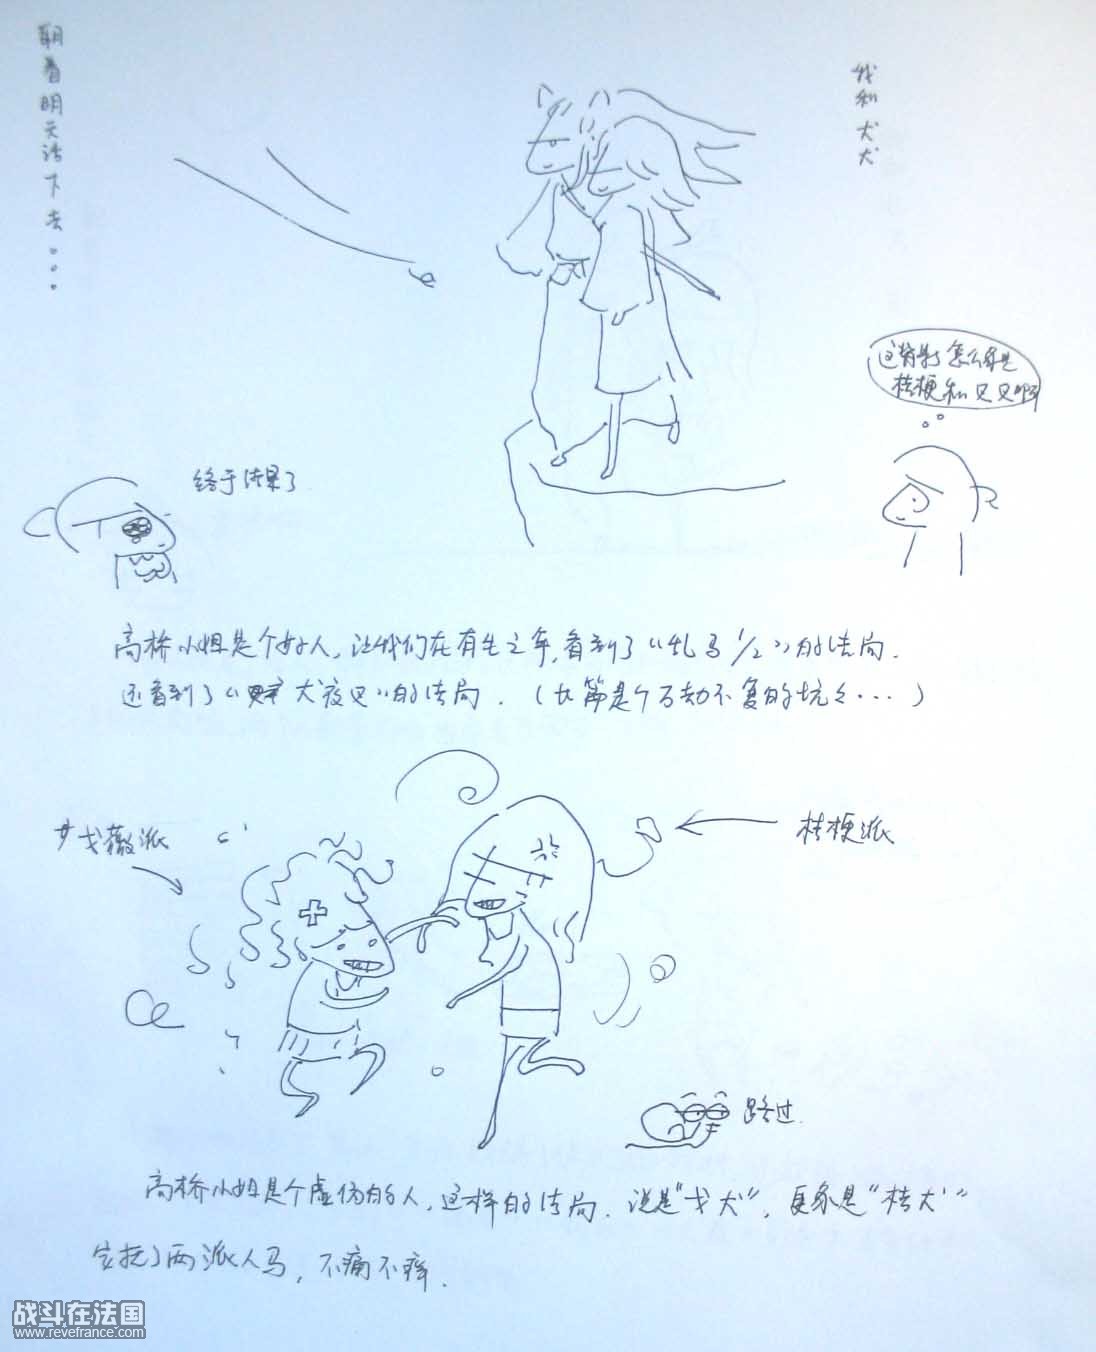 我和犬犬
朝着明天活下去。。。
这背影怎么像是
桔梗和叉叉啊
终于结果了
高桥小姐是个好人，让我们在有生之年，看到了“乱马1/2”的结局．
还看到了“犬夜叉”的结局．（长篇是个万劫不复的坑々···）
戈薇派
桔梗派
路过．
高桥小姐是个虚伪的人，这样的结局．说是“戈犬”，更象是“桔犬”
安抚了两派人马，不痛不痒．
战斗在法国
www.revefrance.com